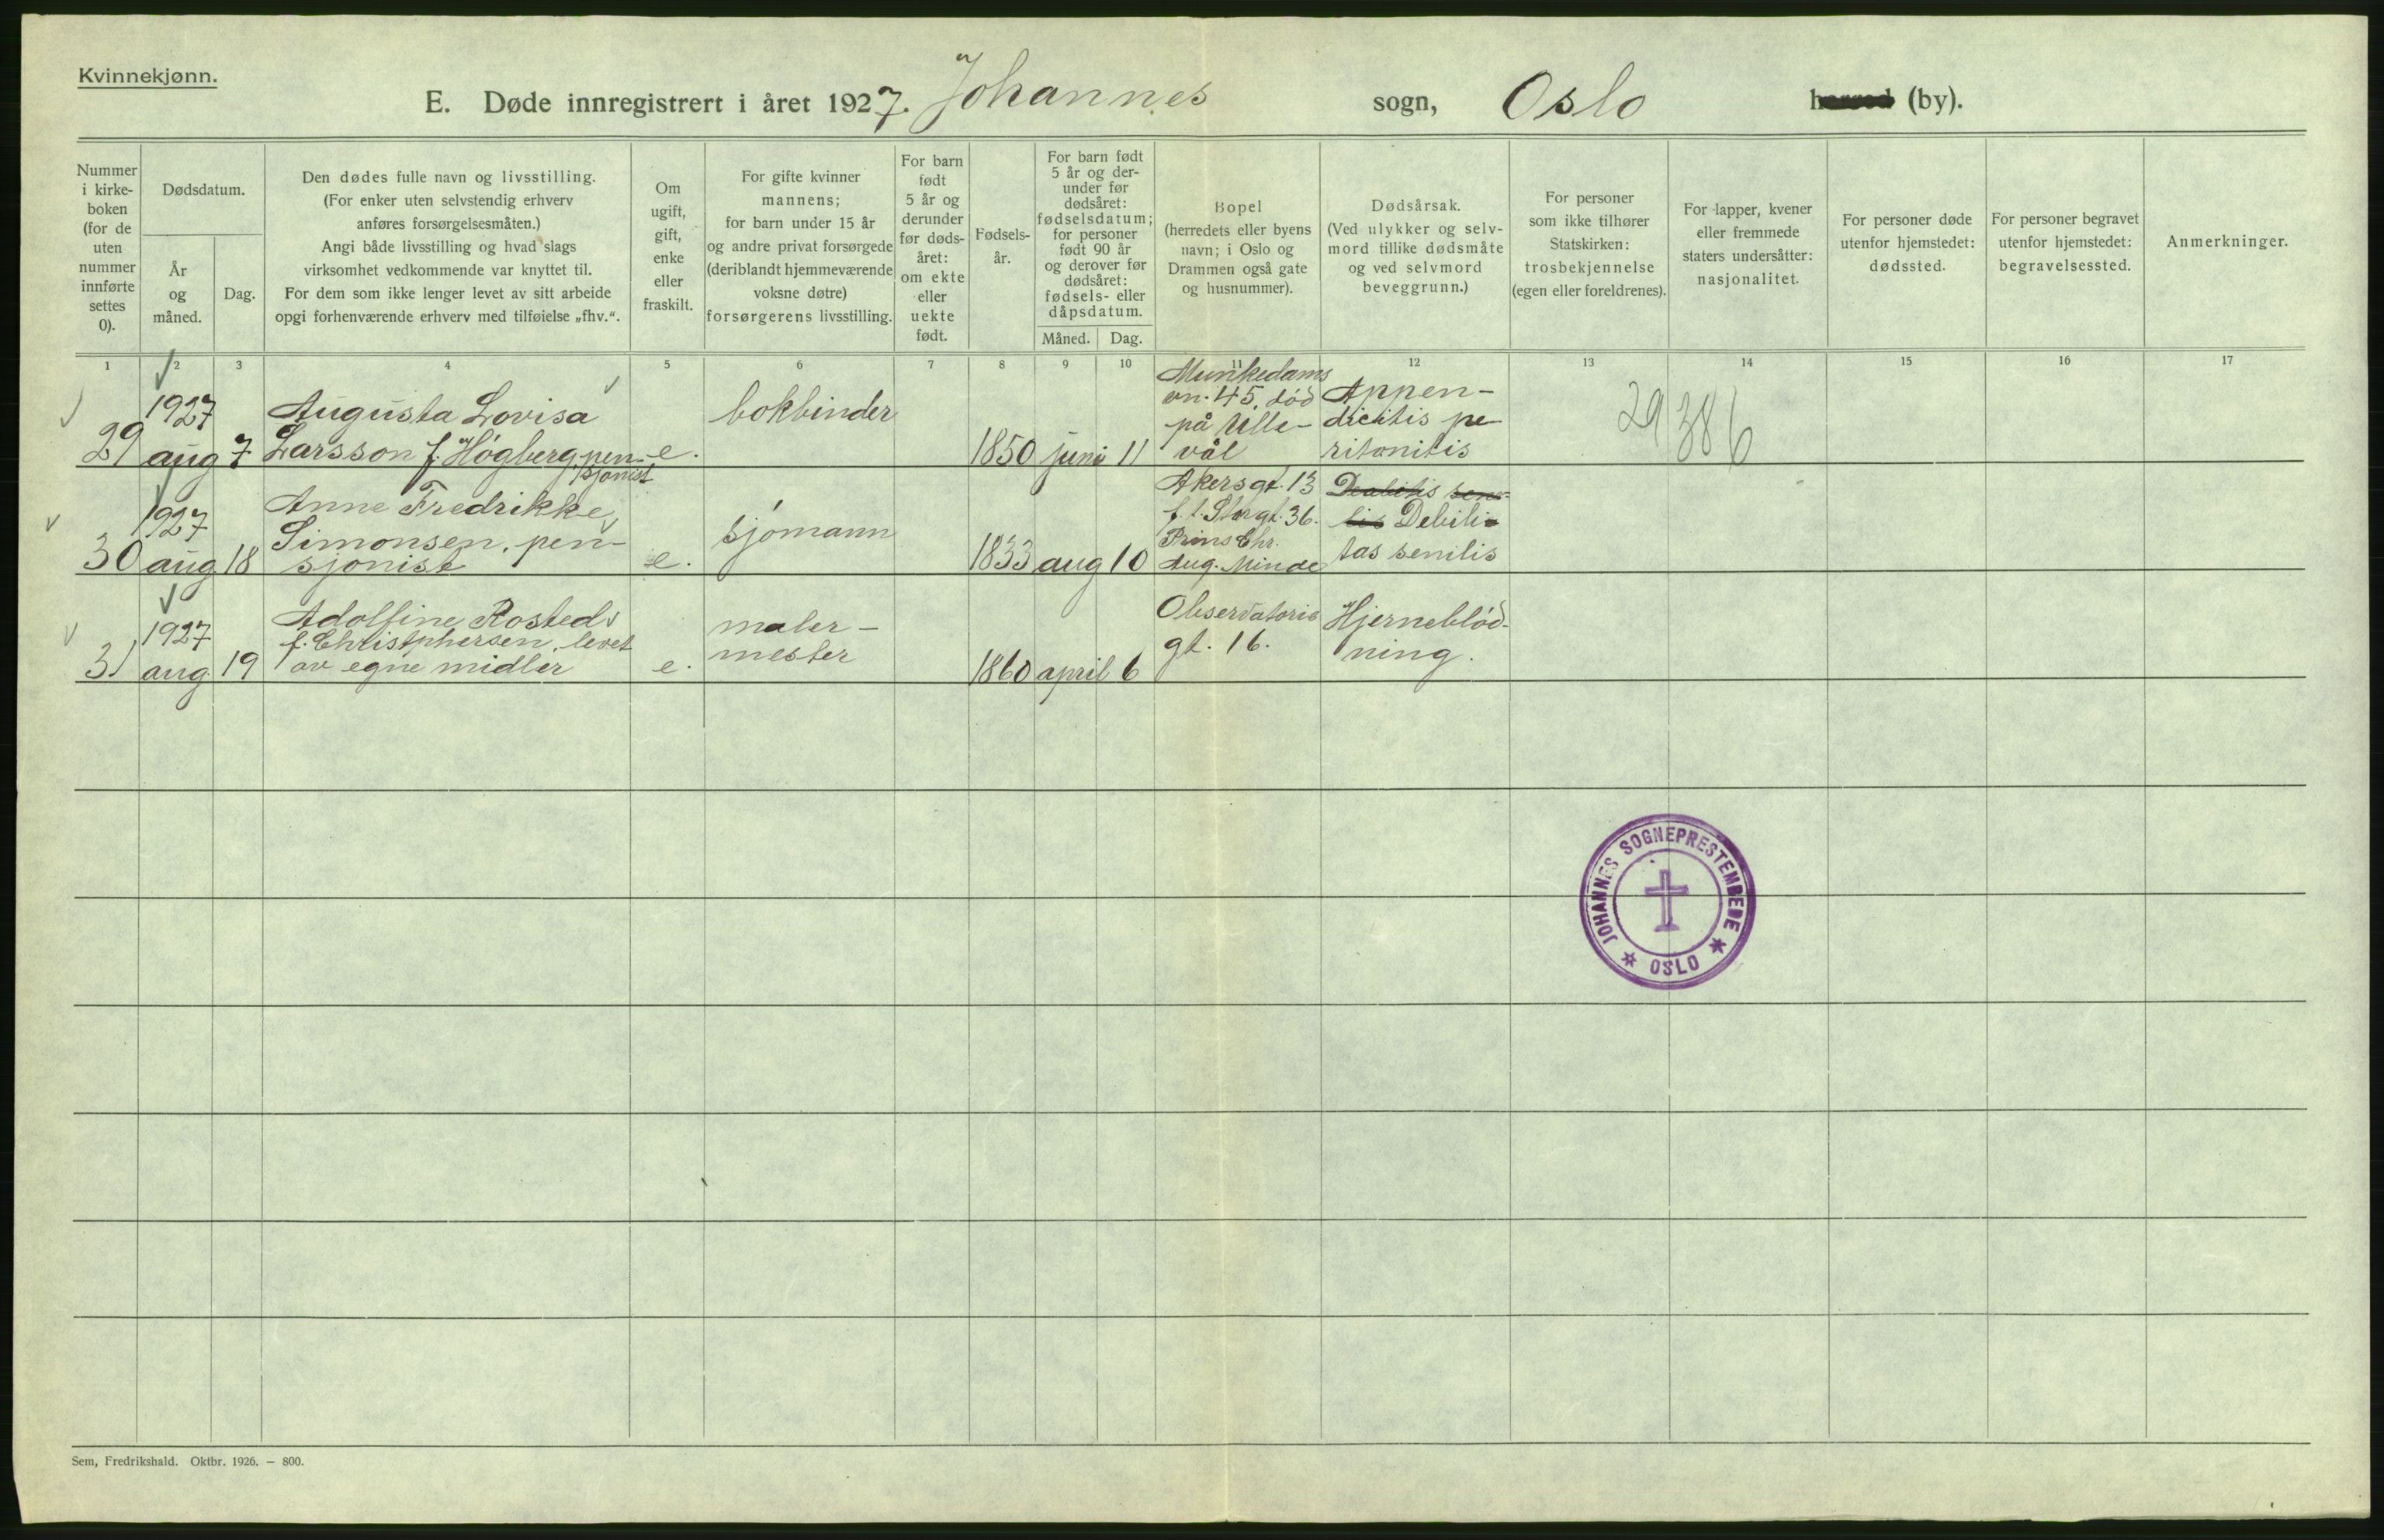 Kvinnekjønn.
E. Døde innregistrert i året 1927. Johannes sogn, Oslo herred (by).
Nummer
i kirke-
boken
(for de
uten
nummer
innførte
settes
0).
Dødsdatum.
År
og
måned.
Dag.
Den dødes fulle navn og livsstilling.
(For enker uten selvstendig erhverv
anføres forsørgelsesmåten.)
Angi både livsstilling og hvad slags
virksomhet vedkommende var knyttet til.
For dem som ikke lenger levet av sitt arbeide
opgi forhenværende erhverv med tilføielse „fhv.“.
Om
ugift,
gift,
enke
eller
fraskilt.
For gifte kvinner
mannens;
for barn under 15 år
og andre privat forsørgede
(deriblandt hjemmeværende
voksne døtre)
forsørgerens livsstilling.
For barn
født
5 år og
derunder
før døds-
året:
om ekte
eller
uekte
født.
Fødsels-
år.
For barn født
5 år og der-
under før
dødsåret:
fødselsdatum;
for personer
født 90 år
og derover før
dødsåret:
fødsels- eller
dåpsdatum.
Måned. Dag.
Bopel
(herredets eller byens
navn; i Oslo og
Drammen også gate
og husnummer).
Dødsårsak.
(Ved ulykker og selv-
mord tillike dødsmåte
og ved selvmord
beveggrunn.)
For personer
som ikke tilhører
Statskirken:
trosbekjennelse
(egen eller foreldrenes).
For lapper, kvener
eller fremmede
staters undersåtter:
nasjonalitet.
For personer døde
utenfor hjemstedet:
dødssted.
For personer begravet
utenfor hjemstedet:
begravelsessted.
Anmerkninger.
1 2 3 4 5 6 7 8 9 10 11 12 13 14 15 16 17
29
1927
aug
7
Augusta Lovisa
Larsson f. Høgberg, pen-
sjonist
e.
bokbinder
1850 juni 11
Munkedams
vn. 45, død
på Ulle-
vål
Appen-
dicitis pe
ritonitis
29386
30
1927
aug
18
Anne Fredrikke
Simonsen, pen-
sjonist
e.
sjømann
1833 aug 10
Akersgt. 13
f. t. Storgt. 36.
Prins Chr.
Aug. Minde
Debili
tas senilis
31
1927
aug.
19
Adolfine Rosted
f. Christphersen, levet
av egne midler
e.
maler-
mester
1860 april 6
Observatorie
gt. 16.
Hjerneblød-
ning.
JOHANNES SOGNEPRESTEMBEDE
OSLO
Sem, Fredrikshald. Oktbr. 1926. — 800.